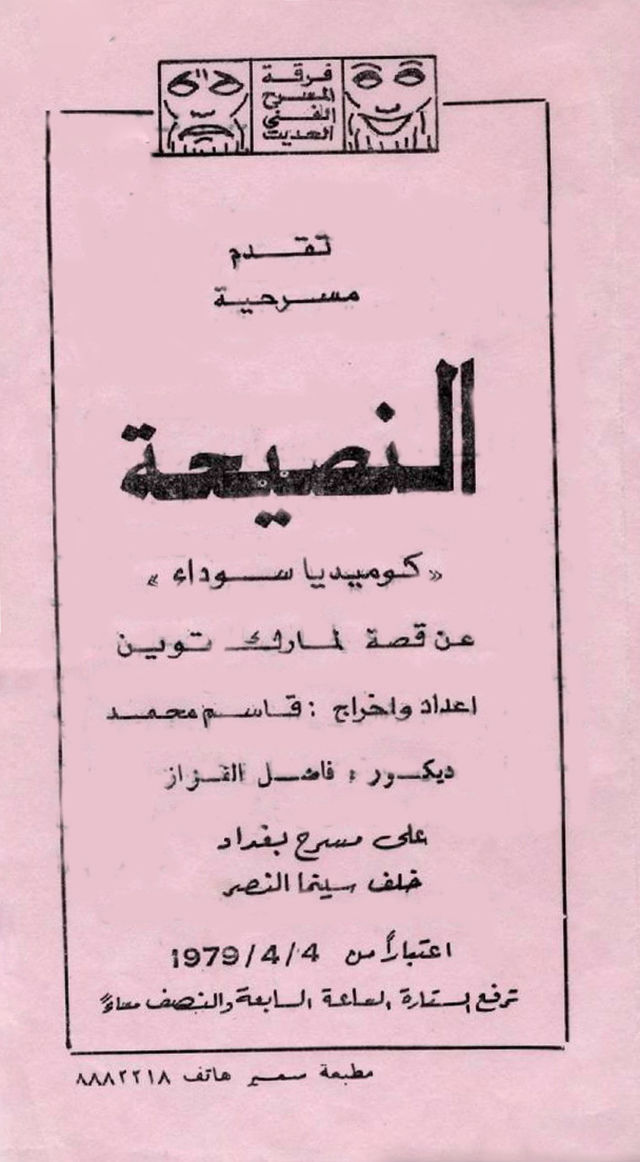 فرقة
المسرح
الفني
الحديث
تقدم
مسرحية
النصيحة
«كوميديا سوداء»
عن قصة لمارك توين
اعداد واخراج : قاسم محمد
ديكور : فاضل القزاز
على مسرح بغداد
خلف سينما النصر
اعتباراً من 1979/4/4
ترفع الستارة الساعة السابعة والنصف مساءً
مطبعة سمير هاتف ٨٨٨٢٢١٨